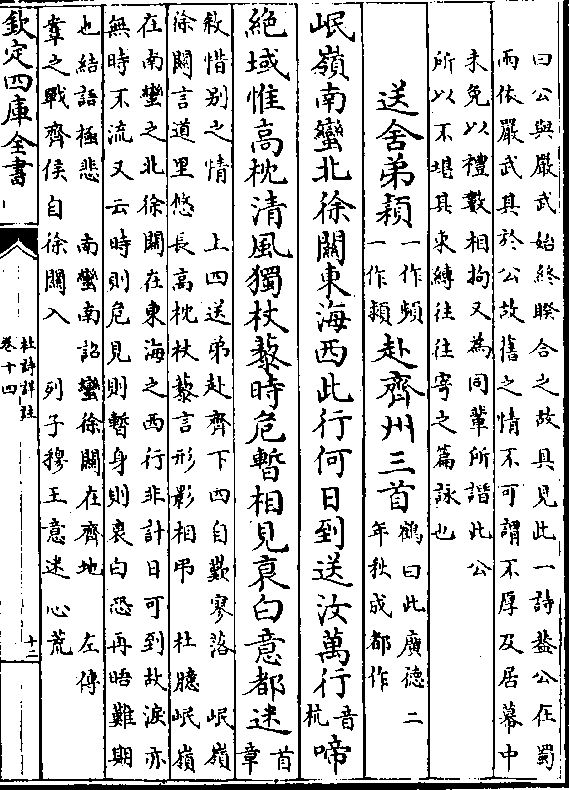 曰公與嚴武始終睽合之故具見此一詩葢公在蜀
而依嚴武其於公故舊之情不可謂不厚及居幕中
未免以禮數相拘又為同輩所譖此公
所以不堪其束縛往往寄之篇詠也
送舍弟穎一作頻一作赴齊州三首鶴曰此廣德二年秋成都作
岷嶺南蠻北徐關東海西此行何日到送汝萬行音杭啼
絶域惟高枕清風獨杖藜時危暫相見衰白意都迷首章
敘惜别之情 上四送弟赴齊下四自歎寥落 岷嶺
徐關言道里悠長高枕杖藜言形影相弔 杜臆岷嶺
在南蠻之北徐關在東海之西行非計日可到故淚亦
無時不流又云時則危見則暫身則衰白恐再晤難期
也結語極悲 南蠻南詔蠻徐關在齊地 左傳
鞌之戰齊侯自徐關入 列子穆王意迷心荒
欽定四庫全書
杜詩詳註
卷十四
十二